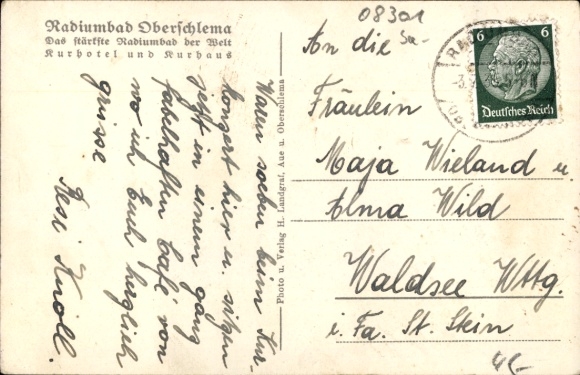 Radiumbad Oberschlema
Das stärkste Radiumbad der Welt
Kurhotel und Kurhaus
Waren soeben beim Kur-
konzert hier u. sitzen
jetzt in einem ganz
fabelhaften Café von
wo ich Euch herzlich
grüsse
Resi Knöll.
Photo u. Verlag H. Landgraf, Aue u. Oberschlema
08301
Sa-
6 6
Deutsches Reich
An die
Fräulein
Maja Wieland u.
Alma Wild
Waldsee Wttg.
i. Fa. St. Stein